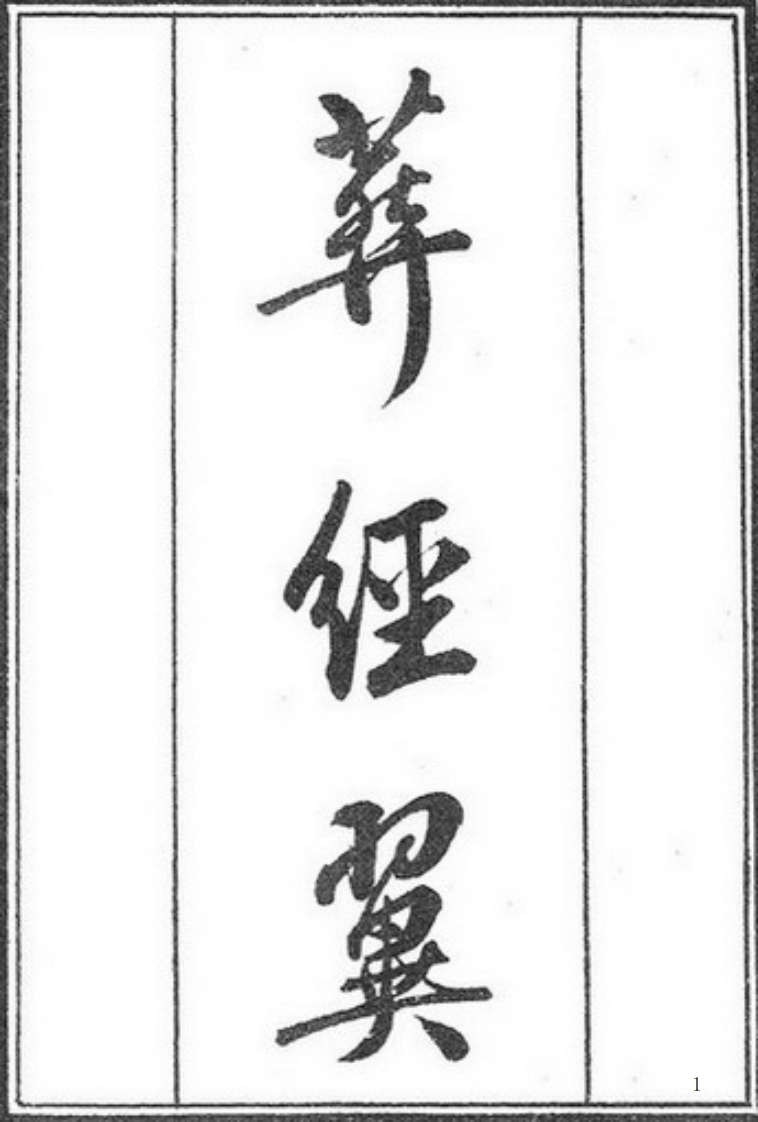 葬經翼
1